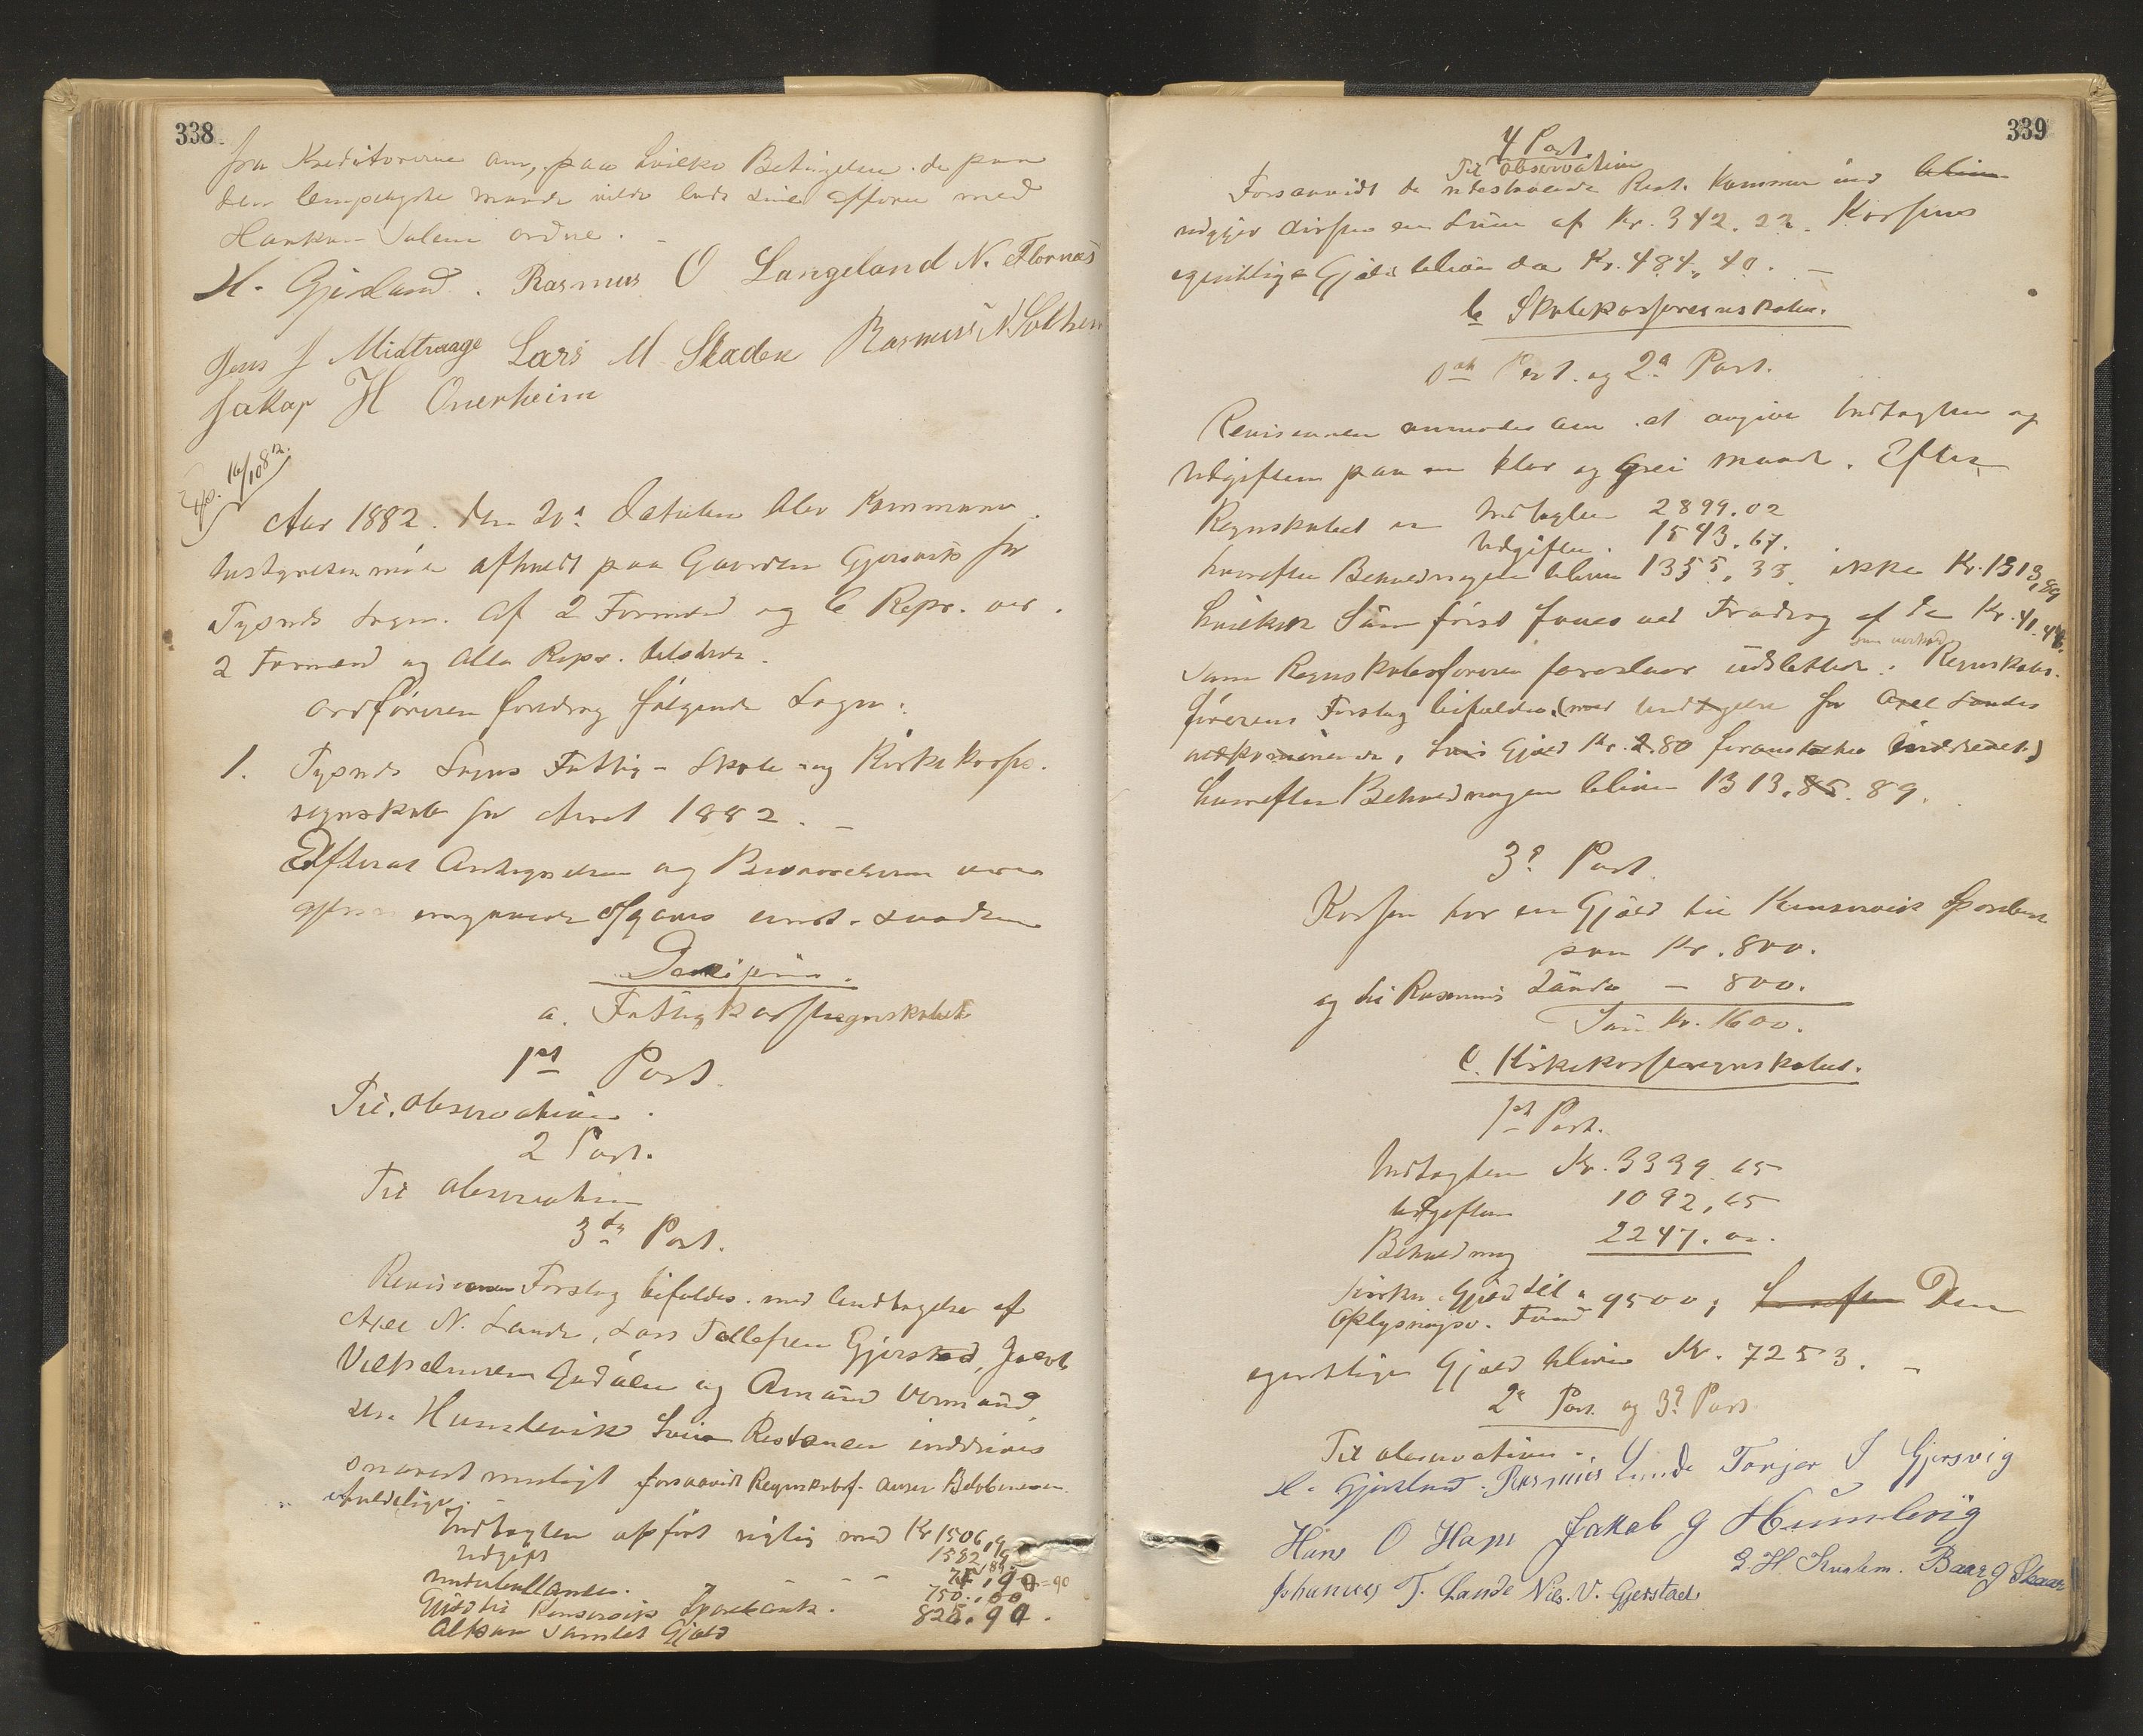 338
fra Kreditorerne om, paa hvilke Betingelser de paa
den lempeligste maade vilde lade sine affærer med
Haakon Salem ordne.
H. Gjerland. Rasmus O Langeland N. Flornæs
Jens J Midtvaage Lars M. Skaden Rasmus N Solhem
Jakop H Onerheim
Exp. 16/10 82.
Aar 1882 den 20de blev Kommune
bestyrelsesmøde afholdt paa Gaarden Gjersvik for
Tysnes Sogn. Af 2 Formænd og 6 Repr. var
2 Formænd og alle Repr. tilstede.
Ordføreren foredrog følgende Sager:
1. Tysnes Sogns Fattig- Skole- og Kirkekasse
regnskab for Aaret 1882.
Efterat Antegnelsen og Besvarelserne vare
Decision.
a. Fattigkasseregnskabet
1st Post
Til observation.
2 Post.
Til observation
3die Post.
Revisionens Forslag bifaldes med Undtagelse af
Axel N. Lande, Lars Tollefsen Gjerstad, Jacob
Vilhelmsen Godøen og Amund Ormund
sen Humlevik hvis Restancer inddrives
snarest muligt forsaavidt Regnskabsf. anser Beløbene
erholdelige.
Indtægten opført rigtig med Kr 1506,
Udgift 1582,
Underballance. 90
Gjæld til Kinservik Sparebank. 750.00
Altsaa samlet Gjæld 825.90.
339
4 Post.
Til observation
Forsaavidt de udestaaende Rest. kommer ind bliver
udgjør disse en Sum af Kr. 342.22. Kassens
egentlige Gjæld bliver da Kr. 484,40.
b Skolekasseregnskabet.
1ste Post. og 2den Post.
Revisionen anmodes om at angive Indtægten og
Udgiften paa en klar og grei maade. Efter
Regnskabet er Indtægten 2899.02
Udgiften. 1543.67.
hvorefter Beholdningen bliver 1355,35. ikke Kr. 1313,89
hvilken Sum først faaes ved Fradrag af de Kr. 41.46.
som Regnskabsføreren foreslaar udslettede. Regnskabs-
førerens Forslag bifaldes (med Undtagelse for Axel Landes
vedkommende, hvis Gjæld Kr. 2.80 foranstaltes inddrevet)
hvorefter Beholdningen bliver 1313.85.89.
3die Post.
Kassen har en Gjæld til Kinservik Sparebank
paa Kr. 800.
og til Rasmus Lunde — 800.
Sum Kr. 1600.
c. Kirkekasseregnskabet.
1st Post.
Indtægten Kr. 3339.65
Udgiften 1092,65
Beholdning 2247.00.
Kirkens Gjæld til
Oplysningsv. Fond 9500; hvorefter Den
egentlige Gjæld bliver Kr. 7253.
2den Post og 3die Post
Til observation.
H. Gjerland. Rasmus Lunde Torjer S Gjersvig
Hans O Hope Jakob G Humlevig
Johannes T. Lande Nils. V. Gjerstad G H. Kvalem. Baar G Skaar